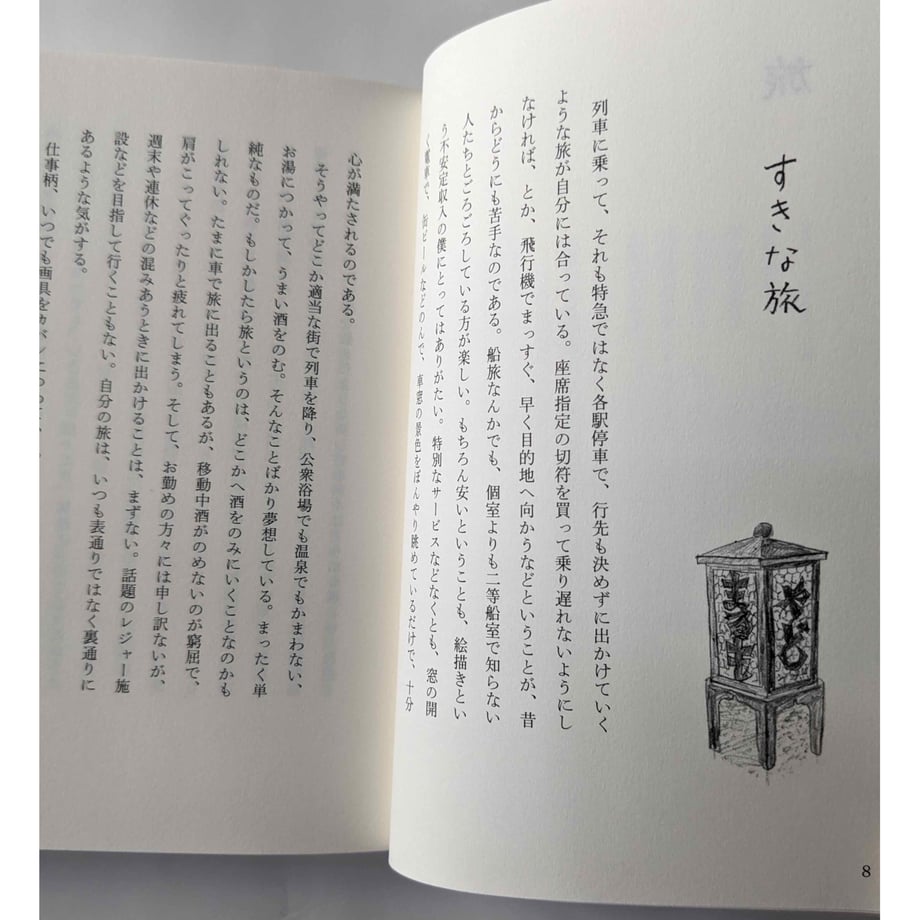 すきな旅
列車に乗って、それも特急ではなく各駅停車で、行先も決めずに出かけていく
ような旅が自分には合っている。座席指定の切符を買って乗り遅れないようにし
なければ、とか、飛行機でまっすぐ、早く目的地へ向かうなどということが、昔
からどうにも苦手なのである。船旅なんかでも、個室よりも二等船室で知らない
人たちとごろごろしている方が楽しい。もちろん安いということも、絵描きとい
う不安定収入の僕にとってはありがたい。特別なサービスなどなくとも、窓の開
く電車で、缶ビールなどのんで、車窓の景色をぼんやり眺めているだけで、十分
8
心が満たされるのである。
そうやってどこか適当な街で列車を降り、公衆浴場でも温泉でもかまわない、
お湯につかって、うまい酒をのむ。そんなことばかり夢想している。まったく単
純なものだ。もしかしたら旅というのは、どこかへ酒をのみにいくことなのかも
しれない。たまに車で旅に出ることもあるが、移動中酒がのめないのが窮屈で、
肩がこってぐったりと疲れてしまう。そして、お勤めの方々には申し訳ないが、
週末や連休などの混みあうときに出かけることは、まずない。話題のレジャー施
設などを目指して行くこともない。自分の旅は、いつも表通りではなく裏通りに
あるような気がする。
仕事柄、いつでも画具をカバンに